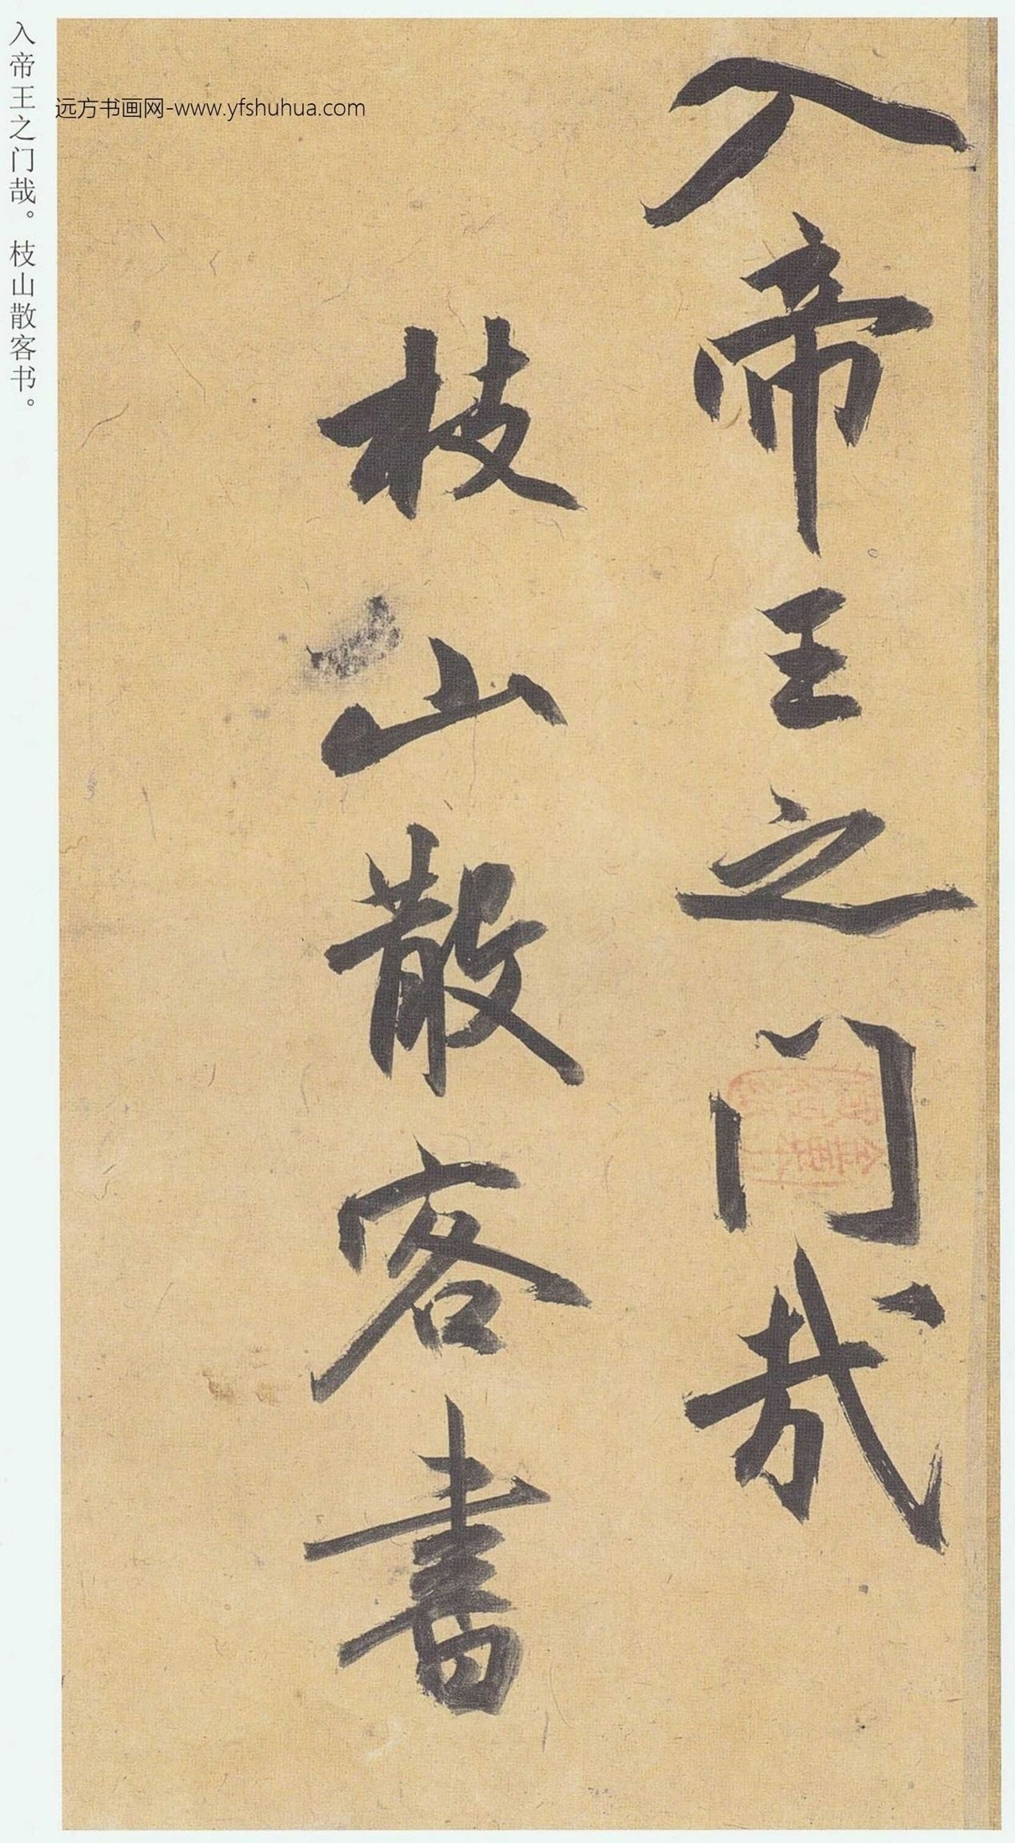 入帝王之门哉
枝山散客書
入帝王之门哉。枝山散客书。
远方书画网-www.yfshuhua.com